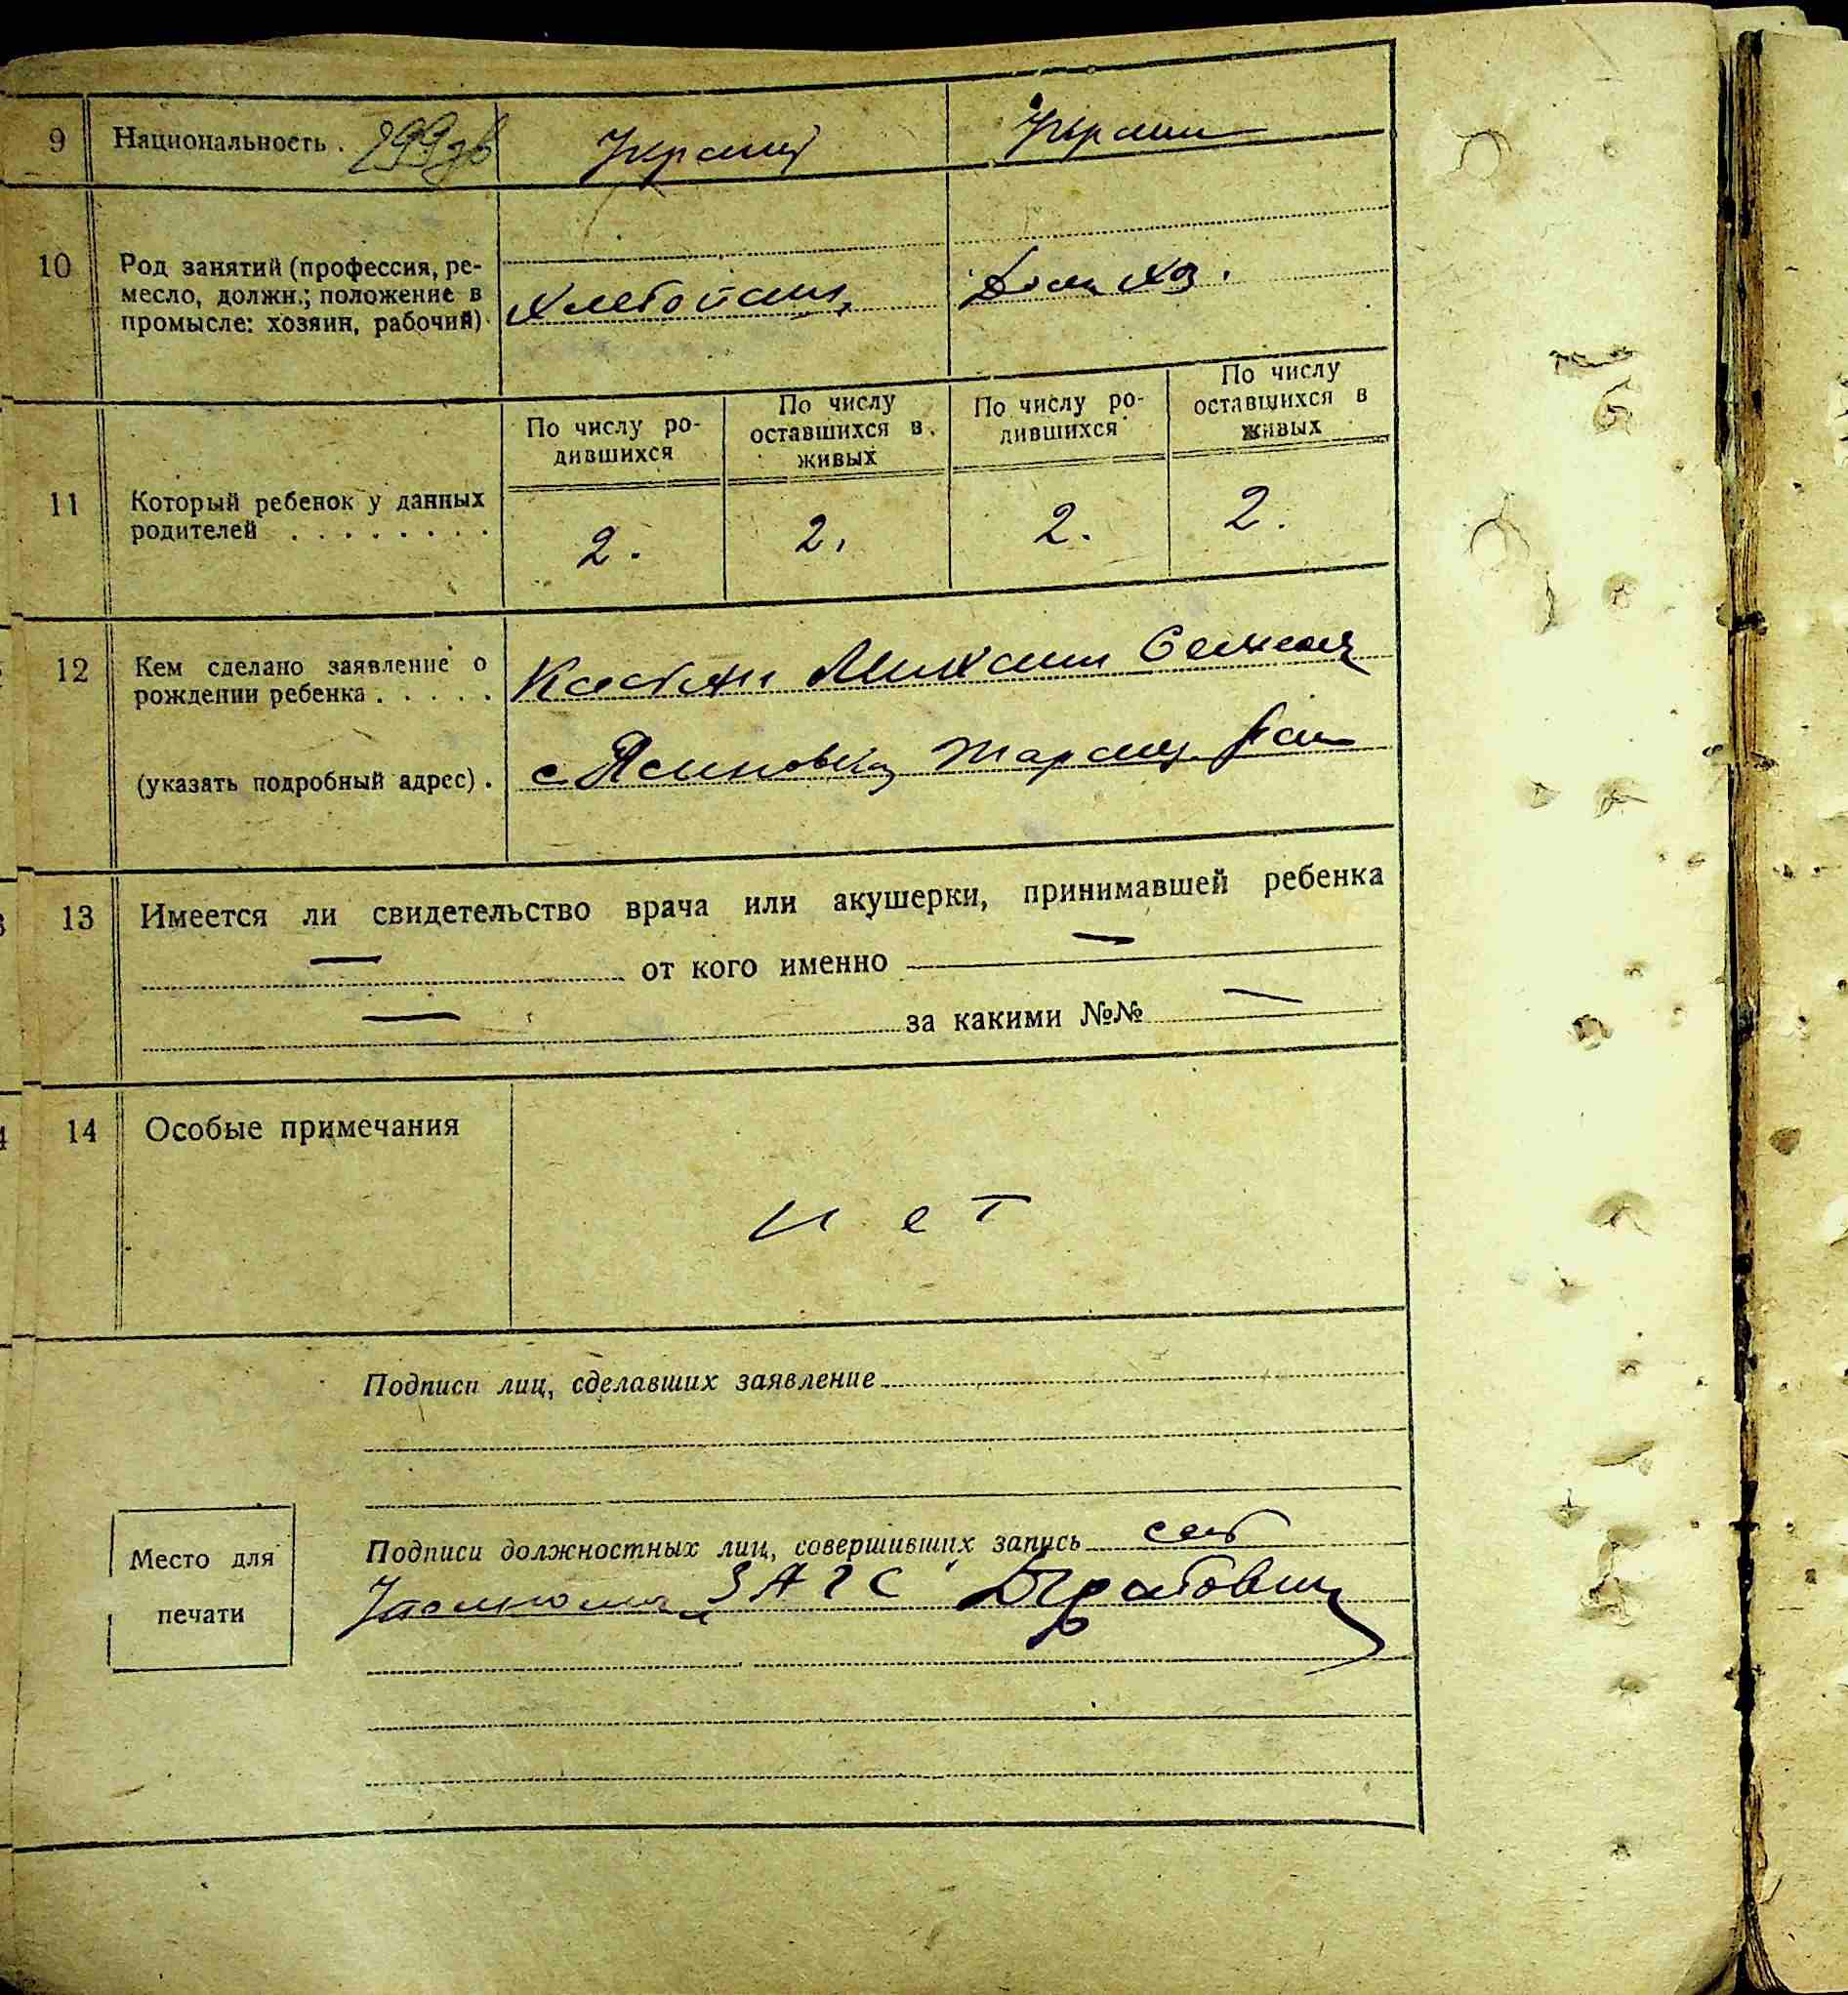 9 Национальность . Украин Украин
10 Род занятий (профессия, ре-
месло, должн.; положение в
промысле: хозяин, рабочий) Хлебопаш. Дом хоз.
11 Который ребенок у данных
родителей . . . . . . . .
По числу ро-
дившихся
По числу
оставшихся в
живых
По числу ро-
дившихся
По числу
оставшихся в
живых
2. 2. 2. 2.
12 Кем сделано заявление о
рождении ребенка . . . . . Михаил Семен
(указать подробный адрес) . с. Ясиновка Таращ. Рай
13 Имеется ли свидетельство врача или акушерки, принимавшей ребенка
— от кого именно —
— за какими №№ —
14 Особые примечания нет
Подписи лиц, сделавших заявление
Подписи должностных лиц, совершивших запись
ЗАГС
Место для
печати